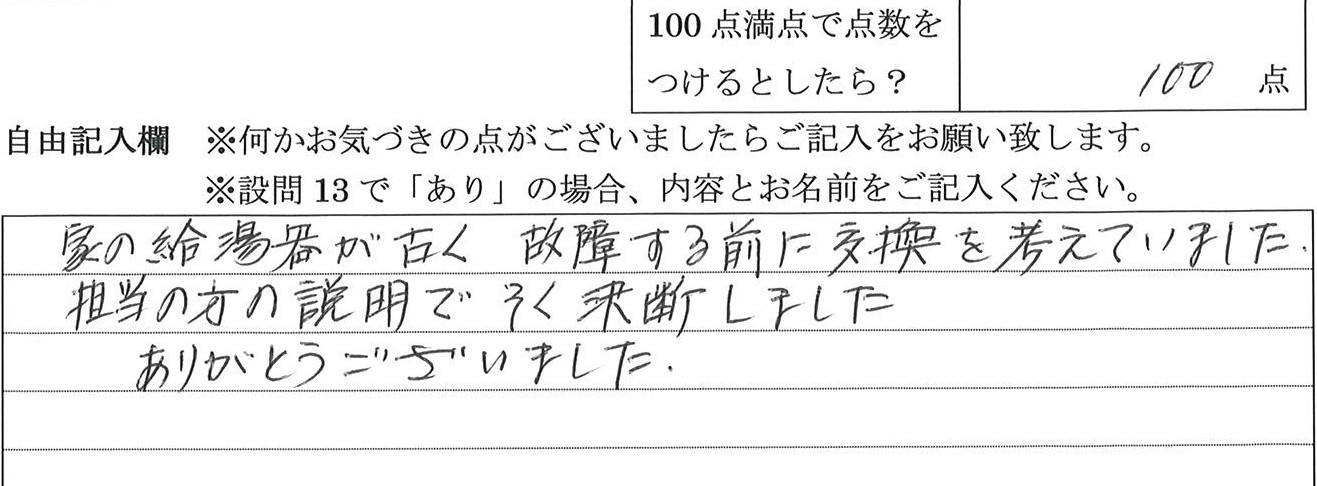 100点満点で点数を
つけるとしたら？
100 点
自由記入欄 ※何かお気づきの点がございましたらご記入をお願い致します。
※設問13で「あり」の場合、内容とお名前をご記入ください。
家の給湯器が古く 故障する前に交換を考えていました.
担当の方の説明で そく決断しました
ありがとうございました.